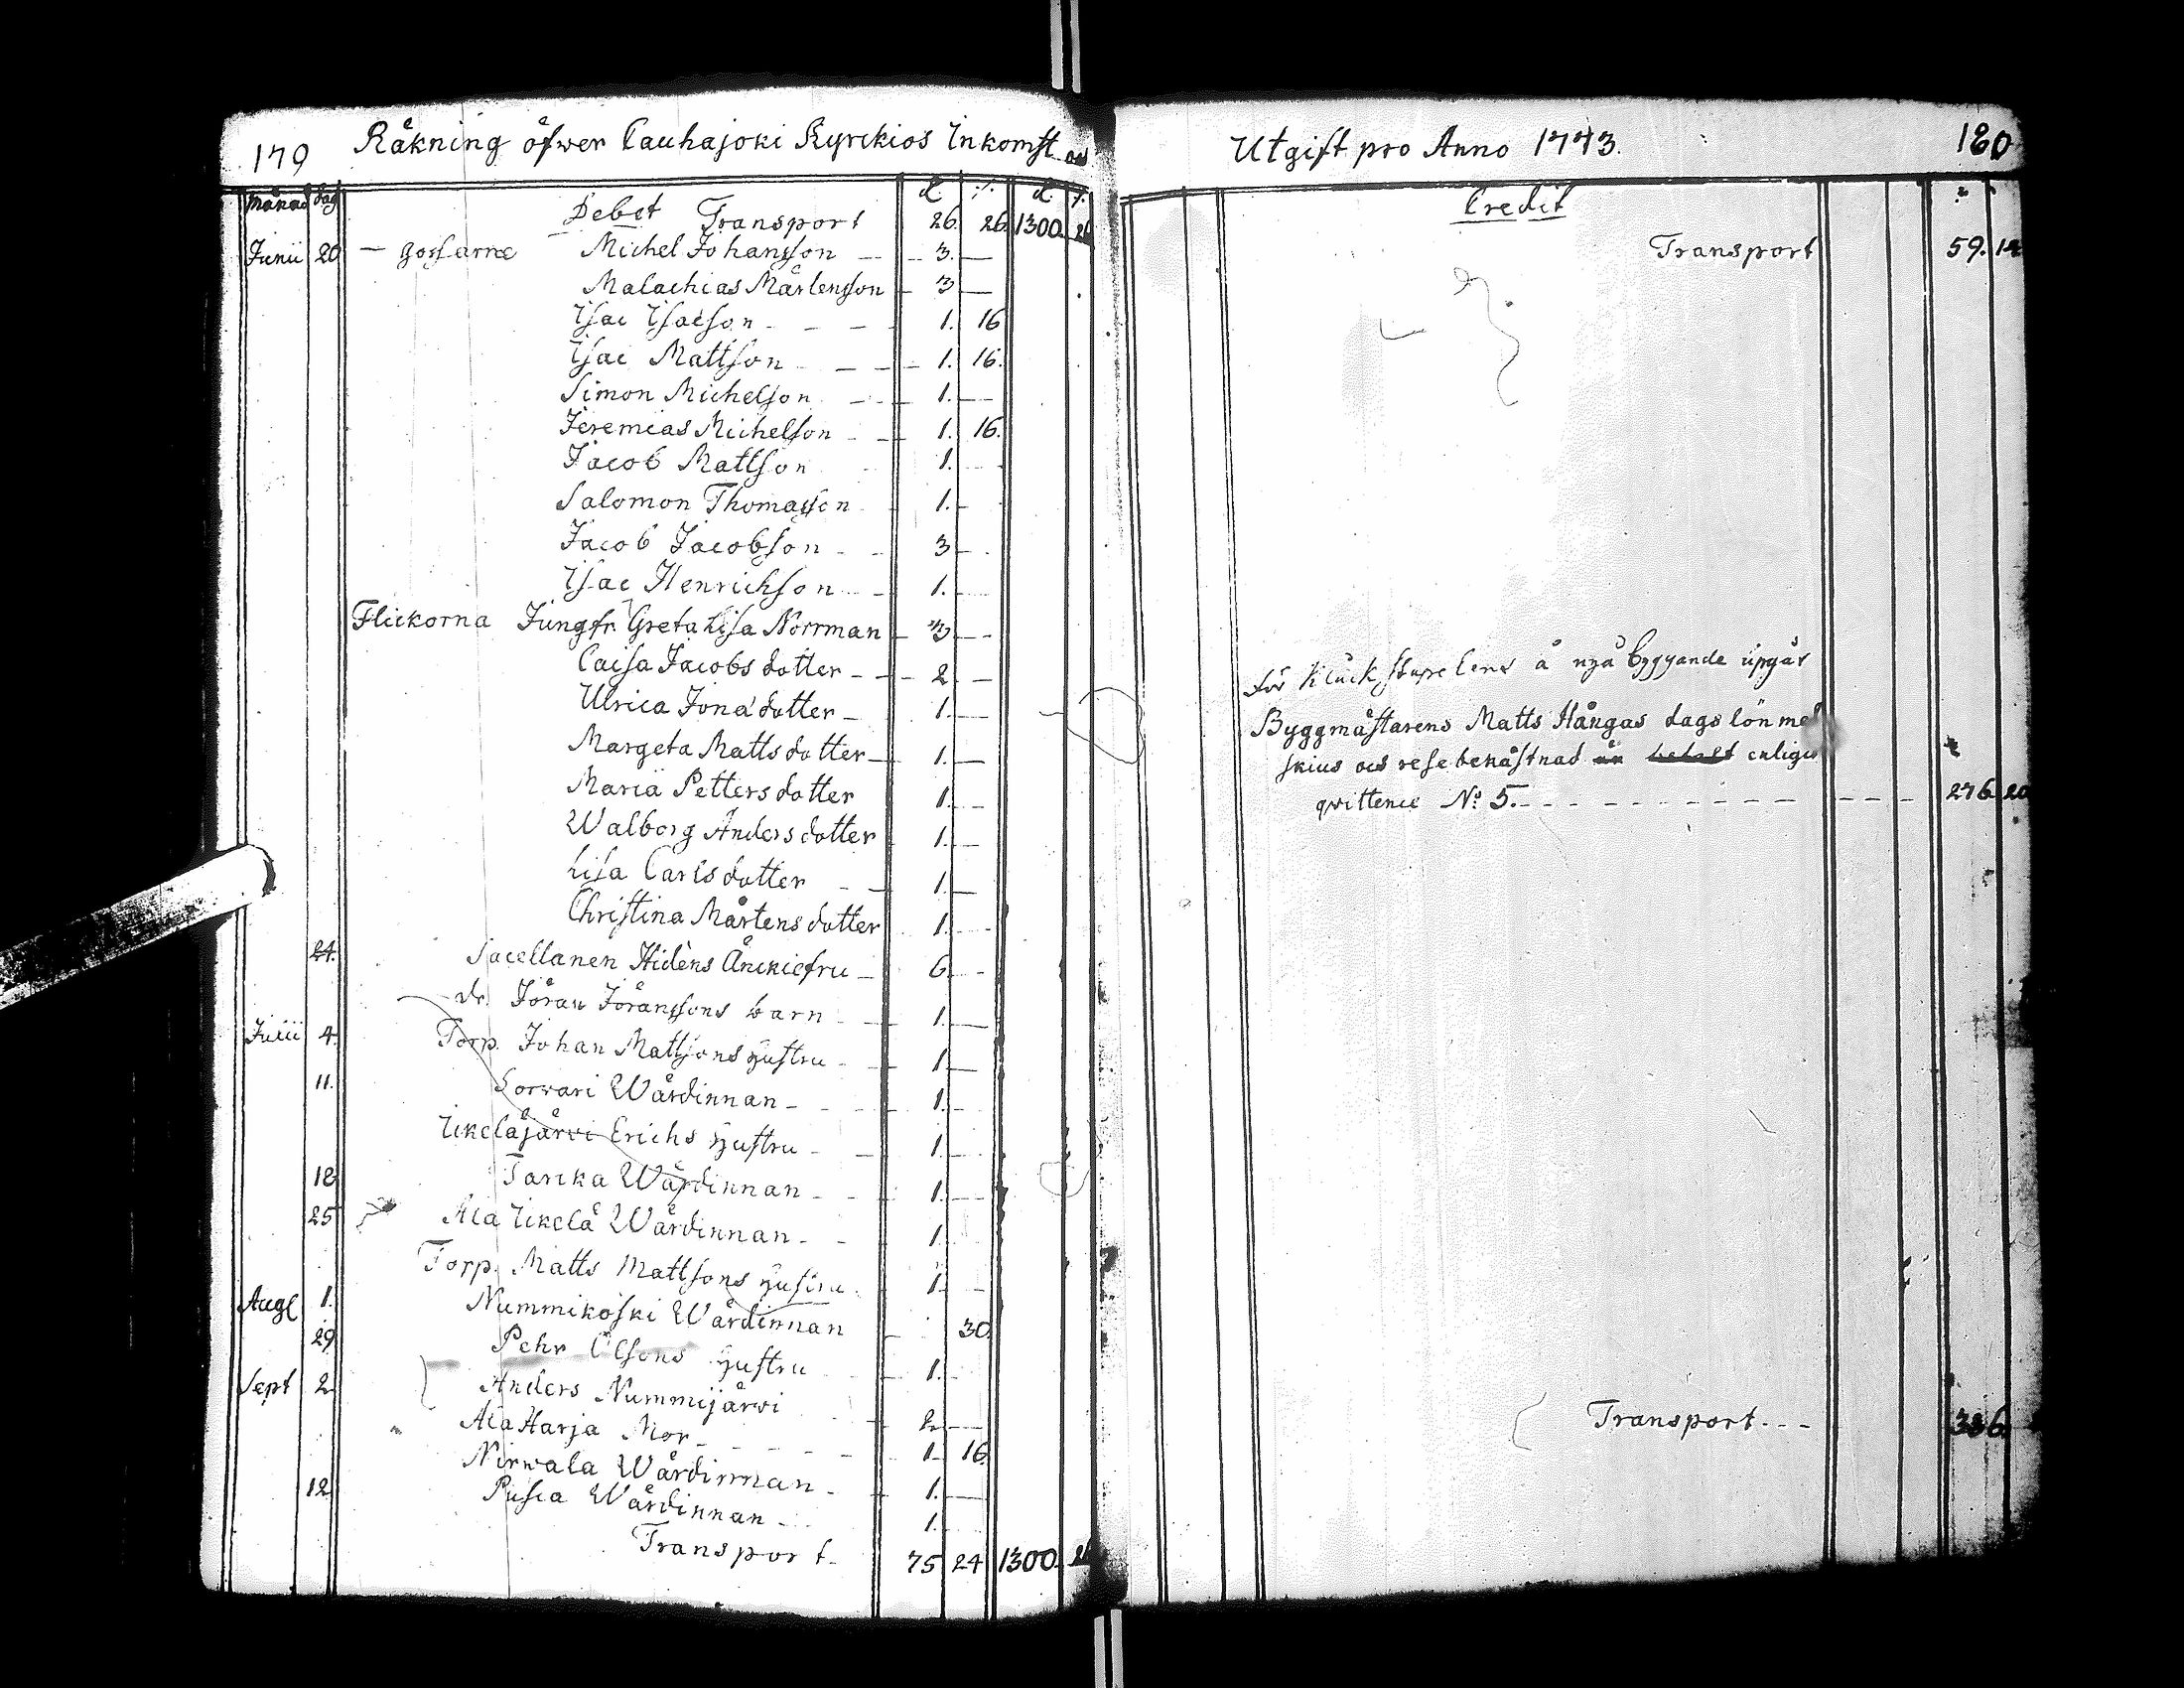 179 Räkning öfwer Cauhajoki Kyrckios Inkomst och
Månad Dag d. ./. d. ./.
Debet Transport 26. 26. 1300. 26
Junii 20 — Gossarne Michel Johansson — 3. —
Malachias Mårtensson — 3 —
Isac Isacson - - - 1. 16
Isac Mattson - - - 1. 16.
Simon Michelson - - 1. —
Jeremias Michelson - - 1. 16.
Jacob Mattson 1. —
Salomon Thomasson 1. —
Jacob Jacobson - - 3 —
Isac Henrichson - - 1. —
Flickorna Jungfr. Greta Lisa Norrman — 3 —
Caisa Jacobs dotter - - - 2 —
Ulrica Jona dotter - 1. —
Margeta Matts dotter — 1. —
Maria Petters dotter 1. —
Walborg Anders dotter 1. —
Lisa Carls dotter - - 1. —
Christina Mårtens dotter 1. —
24. Sacellanen Hidéns Änckiefru — 6. —
dr. Jöran Jöranssons barn - 1. —
Julii 4. Torp. Johan Mattsons hustru - 1 —
11. Lorwari Wärdinnan - 1. —
Ikeläjärwi Erichs hustru - 1. —
18 Tarcka Wärdinnan - - 1. —
25 Ala Ikelä Wärdinnan - - 1.
Torp. Matts Mattsons hustru. 1. —
Aug 1. Nummikoski Wärdinnan 30.
29 Pehr Olsons hustru 1. —
Sept 2 Anders Nummijärwi 2 —
Ala Harja Mor - - - - 1. 16.
Nirwala Wärdinnan - 1. —
12 Pusca Wärdinnan - - 1. —
Transport - 75 24 1300. 26
Utgift pro Anno 1773. 180
Credit
Transport 59. 14
för Kluckstapelens å nya byggande upgår
Byggmästarens Matts Hångas dags lön med
skius och rese bekåstnad enligit
qvittence No 5. - - - - - - - - - - 276. 20
Transport - - - 336.